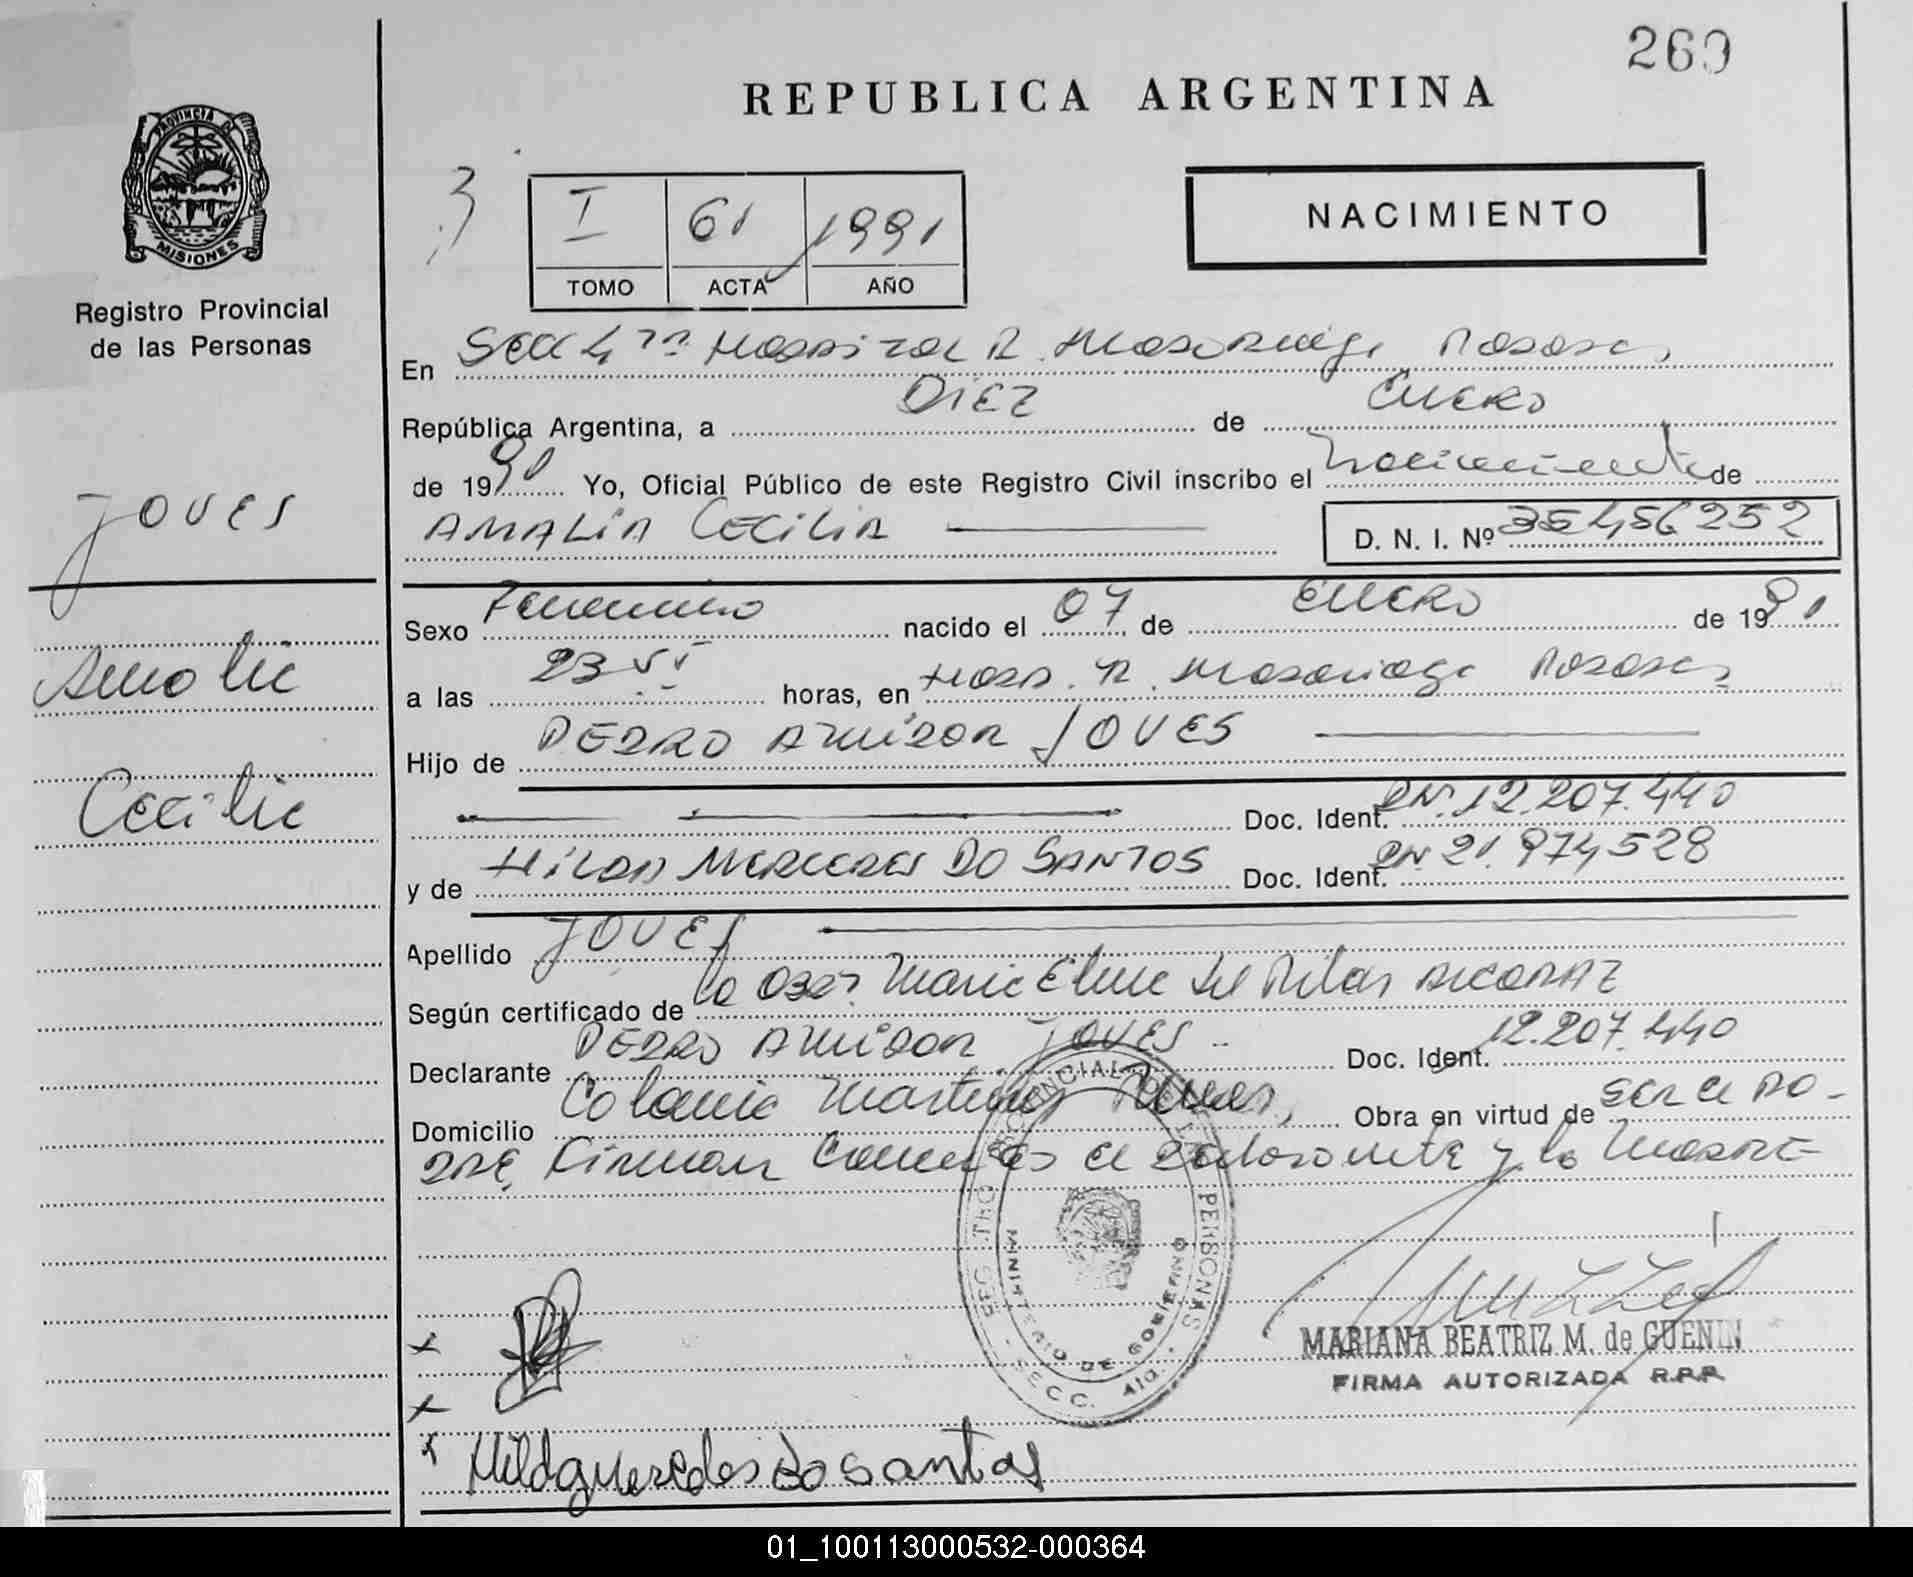 269
REPUBLICA ARGENTINA
PROVINCIA DE
MISIONES
Registro Provincial
de las Personas
3
I 61 1991
TOMO ACTA AÑO
NACIMIENTO
En Secc 4ta Hospital R. Madariaga Posadas
República Argentina, a DIEZ de ENERO
de 1991 Yo, Oficial Público de este Registro Civil inscribo el Nacimiento de
AMALIA CECILIA D. N. I. Nº 35456252
JOVES
Amalia
Cecilia
Sexo Femenino nacido el 07 de ENERO de 1991
a las 23 horas, en Hosp. R. Madariaga Posadas
Hijo de PEDRO JOVES
Doc. Ident. DN. 12.207.440
y de HILDA MERCEDES DO SANTOS Doc. Ident. DN 21.974,528
Apellido JOVES
Según certificado de la Obst. Maria Elene del Pilar ALCARAZ
Declarante PEDRO JOVES Doc. Ident. 12.207.440
Domicilio Colonia Martires Obra en virtud de SER EL PA-
DRE, Firman el declarante y la MADRE
REGISTRO PROVINCIAL DE LAS PERSONAS
MINISTERIO DE GOBIERNO
SECC. 4ta.
MARIANA BEATRIZ M. de GUENIN
FIRMA AUTORIZADA R.P.P.
Hilda Mercedes Do Santos
01_100113000532-000364